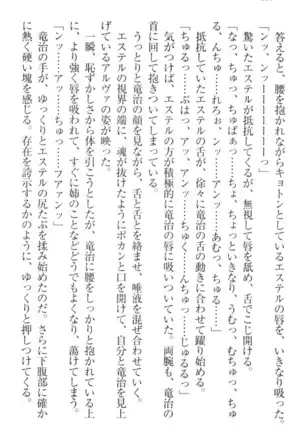 答えると、腰を抱かれながらキョトンとしているエステルの唇を。
「んっ、ンッーーーーーーっ」
驚いたエステルが抵抗してくるが、無視して唇を舐め、舌でこじ開ける。
「なっ、ちゅっ、ちゅぱぁっ……ちょ、ちょっといきなり、うむっ、むちゅっ、ちゅ、ちゅっ、ちゅれろぉ、ンッ……アンッ……あむっ、ちゅる……」
抵抗していたエステルの舌が、徐々に竜治の舌の動きに合わせて躍り始める。
「ちゅる……ぷはっ、アッ……ちゅく、んちゅっ……じゅるるっ」
気がつけば、エステルの方が積極的に竜治の唇に吸いついていた。両腕も、竜治の首に回して抱きついてしまっている。
うっとりと竜治の顔を見ながら、舌と舌とを絡ませ、唾液を混ぜ合わせていく。
エステルの視界の端に、魂が抜けたようにポカンと口を開けて、自分と竜治を見上げているアルヴァの姿が映った。
一瞬、恥ずかしさから体を引こうとしたが、竜治に腰をしっかりと抱かれている上により強く唇を吸われて、すぐに姉のことなどどうでもよくなり、蕩けてしまう。
「ンッ……アッ……ちゅっ……ファアンッ」
竜治の手が、ゆっくりとエステルの尻たぶを揉み始めたのだ。さらに下腹部に確かに熱く硬い塊を感じる。存在を誇示するかのように、ゆっくりと押しつけてくる。